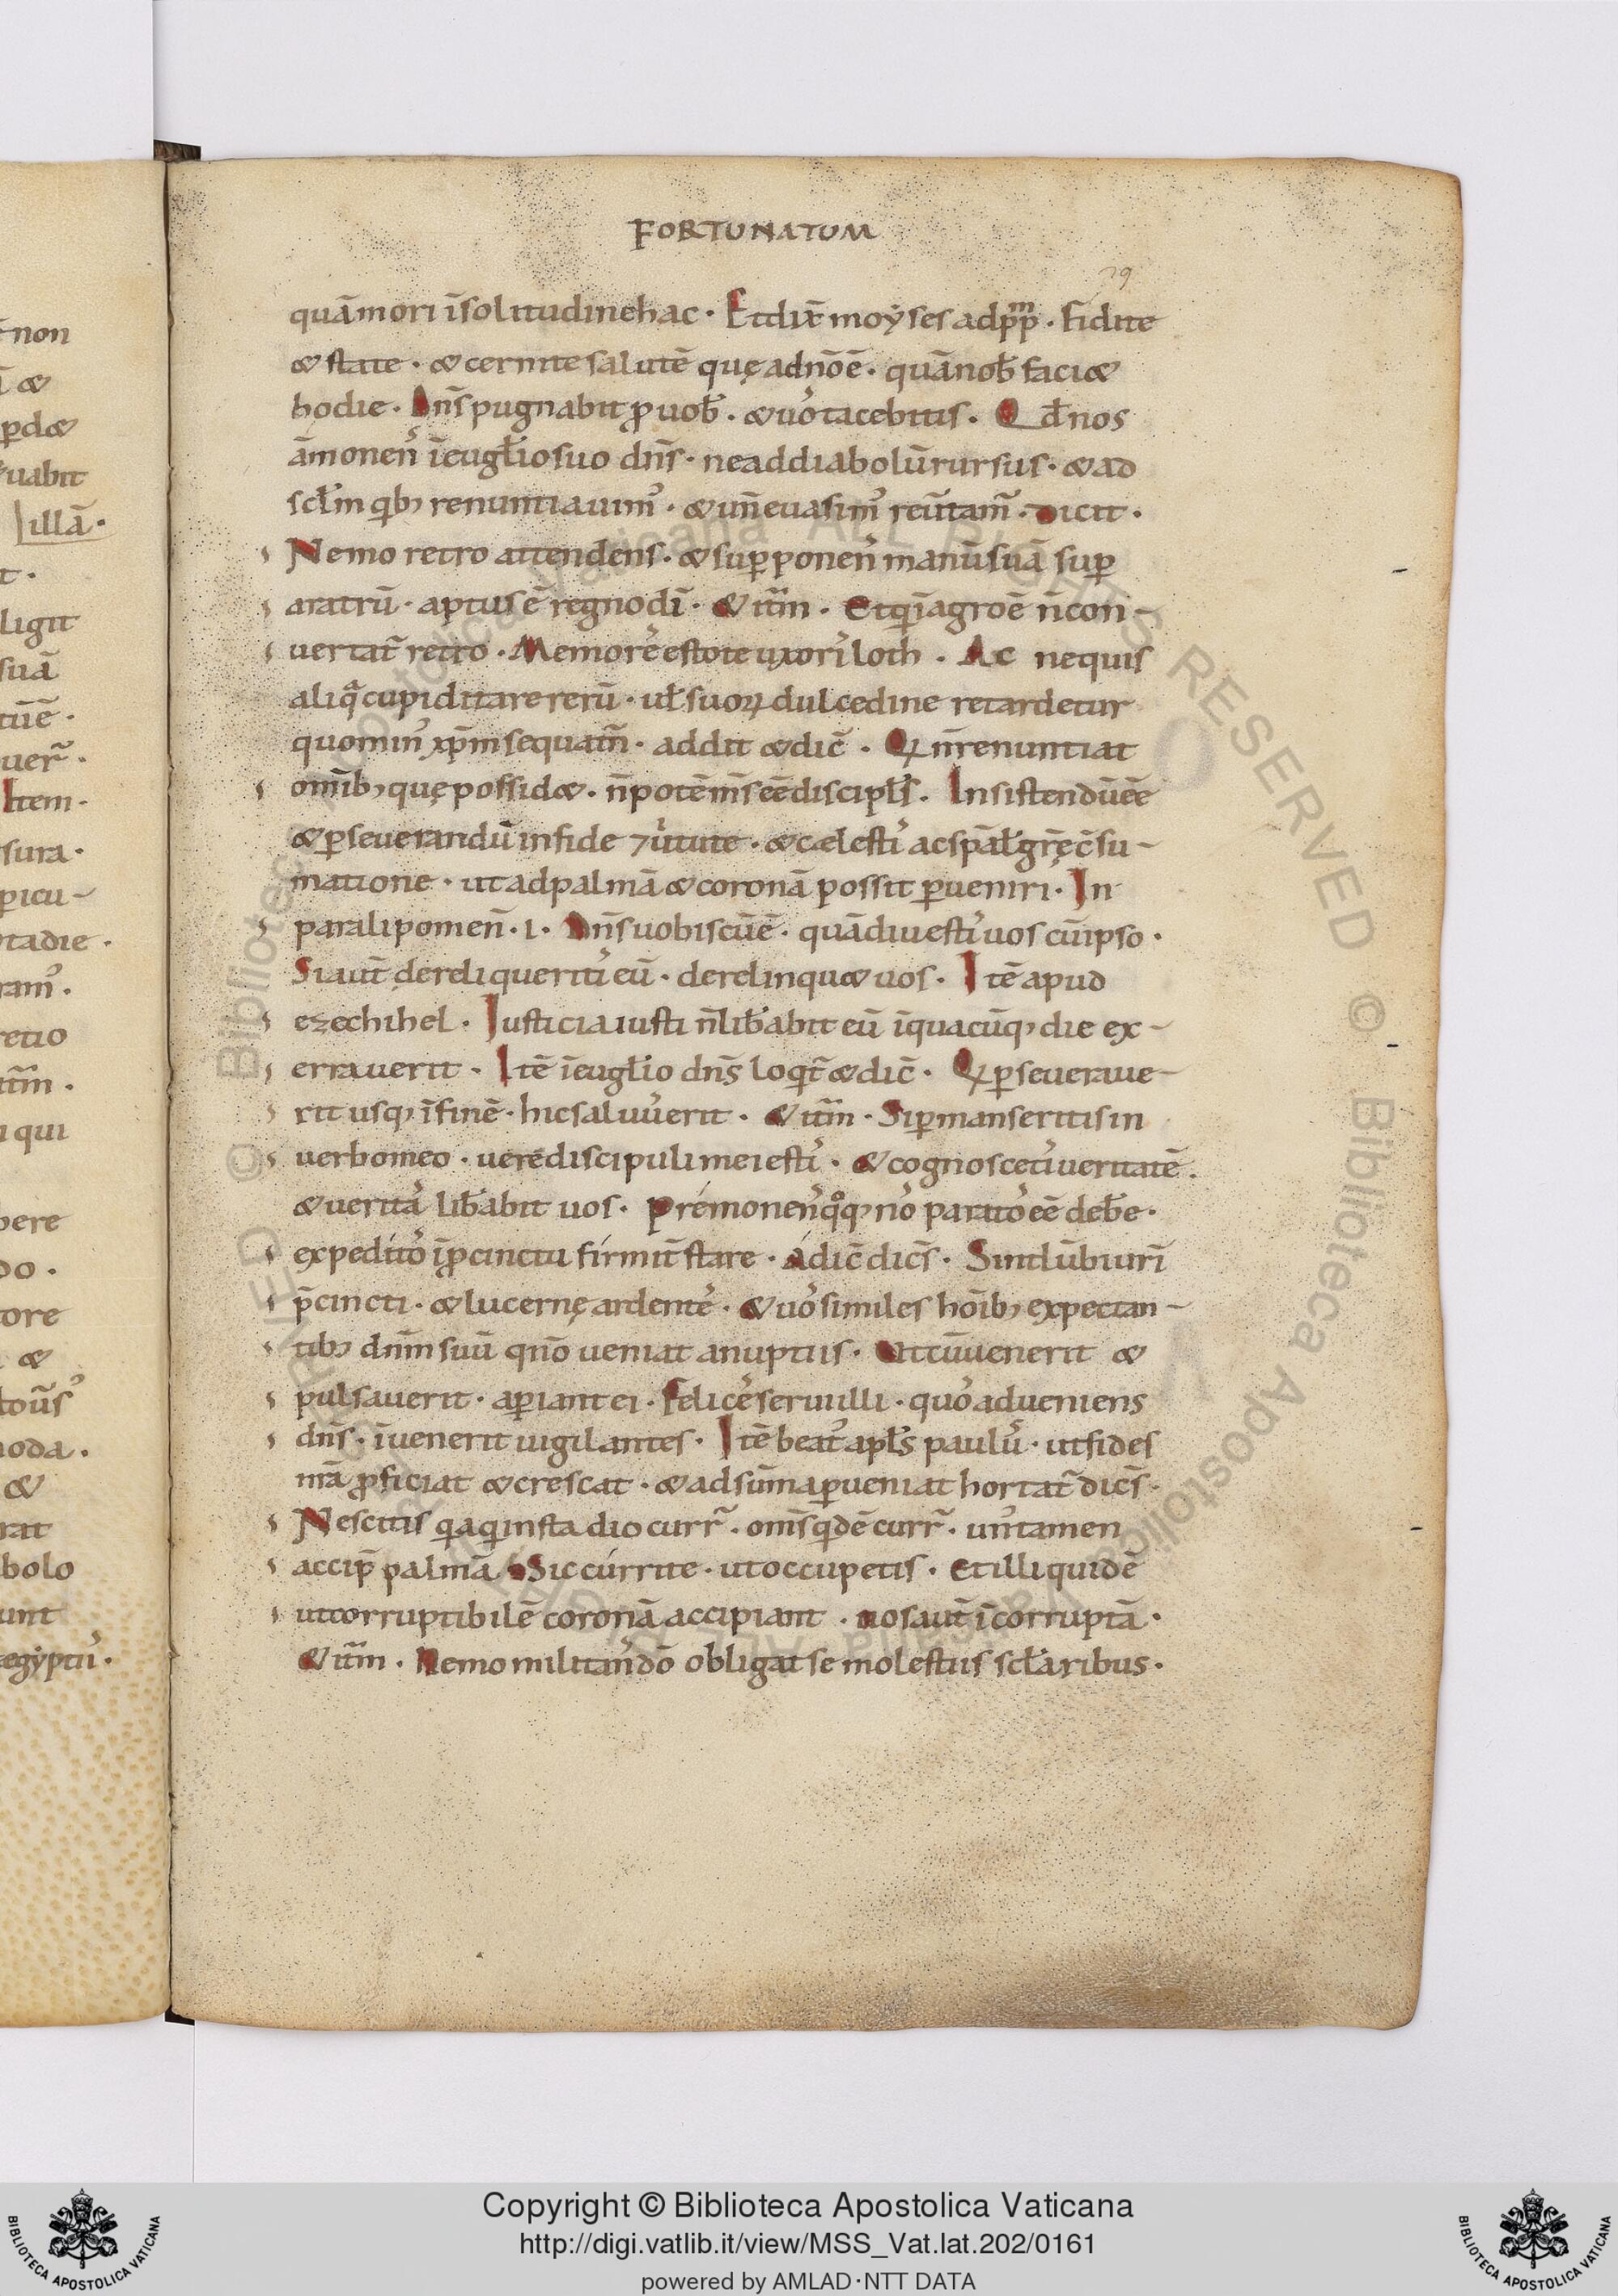 FORTUNATUM
79
quā mori ī solitudine hac · Et dix̄ moẏses ad pp̄m · fidite
& state · & cernite salutē quę a dnō ē · quā nob̄ faci&
hodie · Dn̄s pugnabit ꝓ uob̄ · & uo᾽ tacebitis · Qd̄ nos
āmonen᾽ ī eugl̄io suo dn̄s · ne ad diabolū rursus · & ad
scl̄m qib; renuntiauim᾽ · & un̄ euasim᾽ reūtam̄ · dicit ·
Nemo retro attendens · & sup̱ponen᾽ manū suā sup̱
aratrū · aptus ē regno dī · & itm̄ · Et qi ī agro ē n̄ con-
uertat̄ retro · Memore᾽ estote uxori᾽ loth · Ac nequis
aliqa cupiditare rerū · ul̄ suoꝝ dulcedine retardetur
quomin᾽ xp̄m sequatn̄ · addit & dic̄ · Qi n̄ renuntiat
omīb; quę possid& · n̄ potē ms̄ eē discipl̄s · Insistendū eē
& ꝑseuerandū in fide ⁊ u᾽tute · & cælesti᾽ ac sp̄al̄ gr̄ę c̄su-
matione · ut ad palmā & coronā possit ꝑueniri · In
paralipomen̄ · i · Dn̄s uobiscū ē · quādiu esti᾽ uos cū ipso ·
Si aut̄ dereliqueriti᾽ eū · derelinqu& uos · Itē apud
ezechihel · Iusticia iusti n̄ lib̄abit eū ī quacūq; die ex-
errauerit · Itē ī eugl̄io dn̄s loqit̄ & dic̄ · Qi ꝑseueraue-
rit usq; ī finē · hic saluu᾽ erit · & itm̄ · Si ꝑmanseritis in
uerbo meo · uere discipuli mei esti᾽ · & cognosceti᾽ ueritatē ·
& uerita᾽ lib̄abit uos · Premonen᾽ qoq; no᾽ parato᾽ eē deb̄e ·
expedito᾽ ī ꝓcinctu firmit̄ stare · adic̄ dicēs · Sint lūbi uri
p̄cincti · & lucernę ardente᾽ · & uo᾽ similes hoīb; expectan-
tib; dnm̄ suū qn̄o ueniat a nuptiis · Ut cū uenerit &
pulsauerit · aꝑiant ei · felice᾽ serui illi · quo᾽ adueniens
dn̄s · īuenerit uigilantes · Itē beat᾽ apl̄s paulu᾽ · ut fides
nr̄a ꝓficiat & crescat · & ad sūma ꝑueniat hortat̄ dicēs ·
Nescitis qia qi in stadio curr̄ · oms̄ qidē curr̄ · un᾽ tamen
accip̄ palmā · Sic currite · ut occupetis · Et illi quidē
ut corruptibilē coronā accipiant · nos aut̄ ī corruptā ·
& itm̄ · Nemo militan᾽ dō obligat se molestiis scl̄aribus ·
Copyright © Biblioteca Apostolica Vaticana
http://digi.vatlib.it/view/MSS_Vat.lat.202/0161
powered by AMLAD·NTT DATA